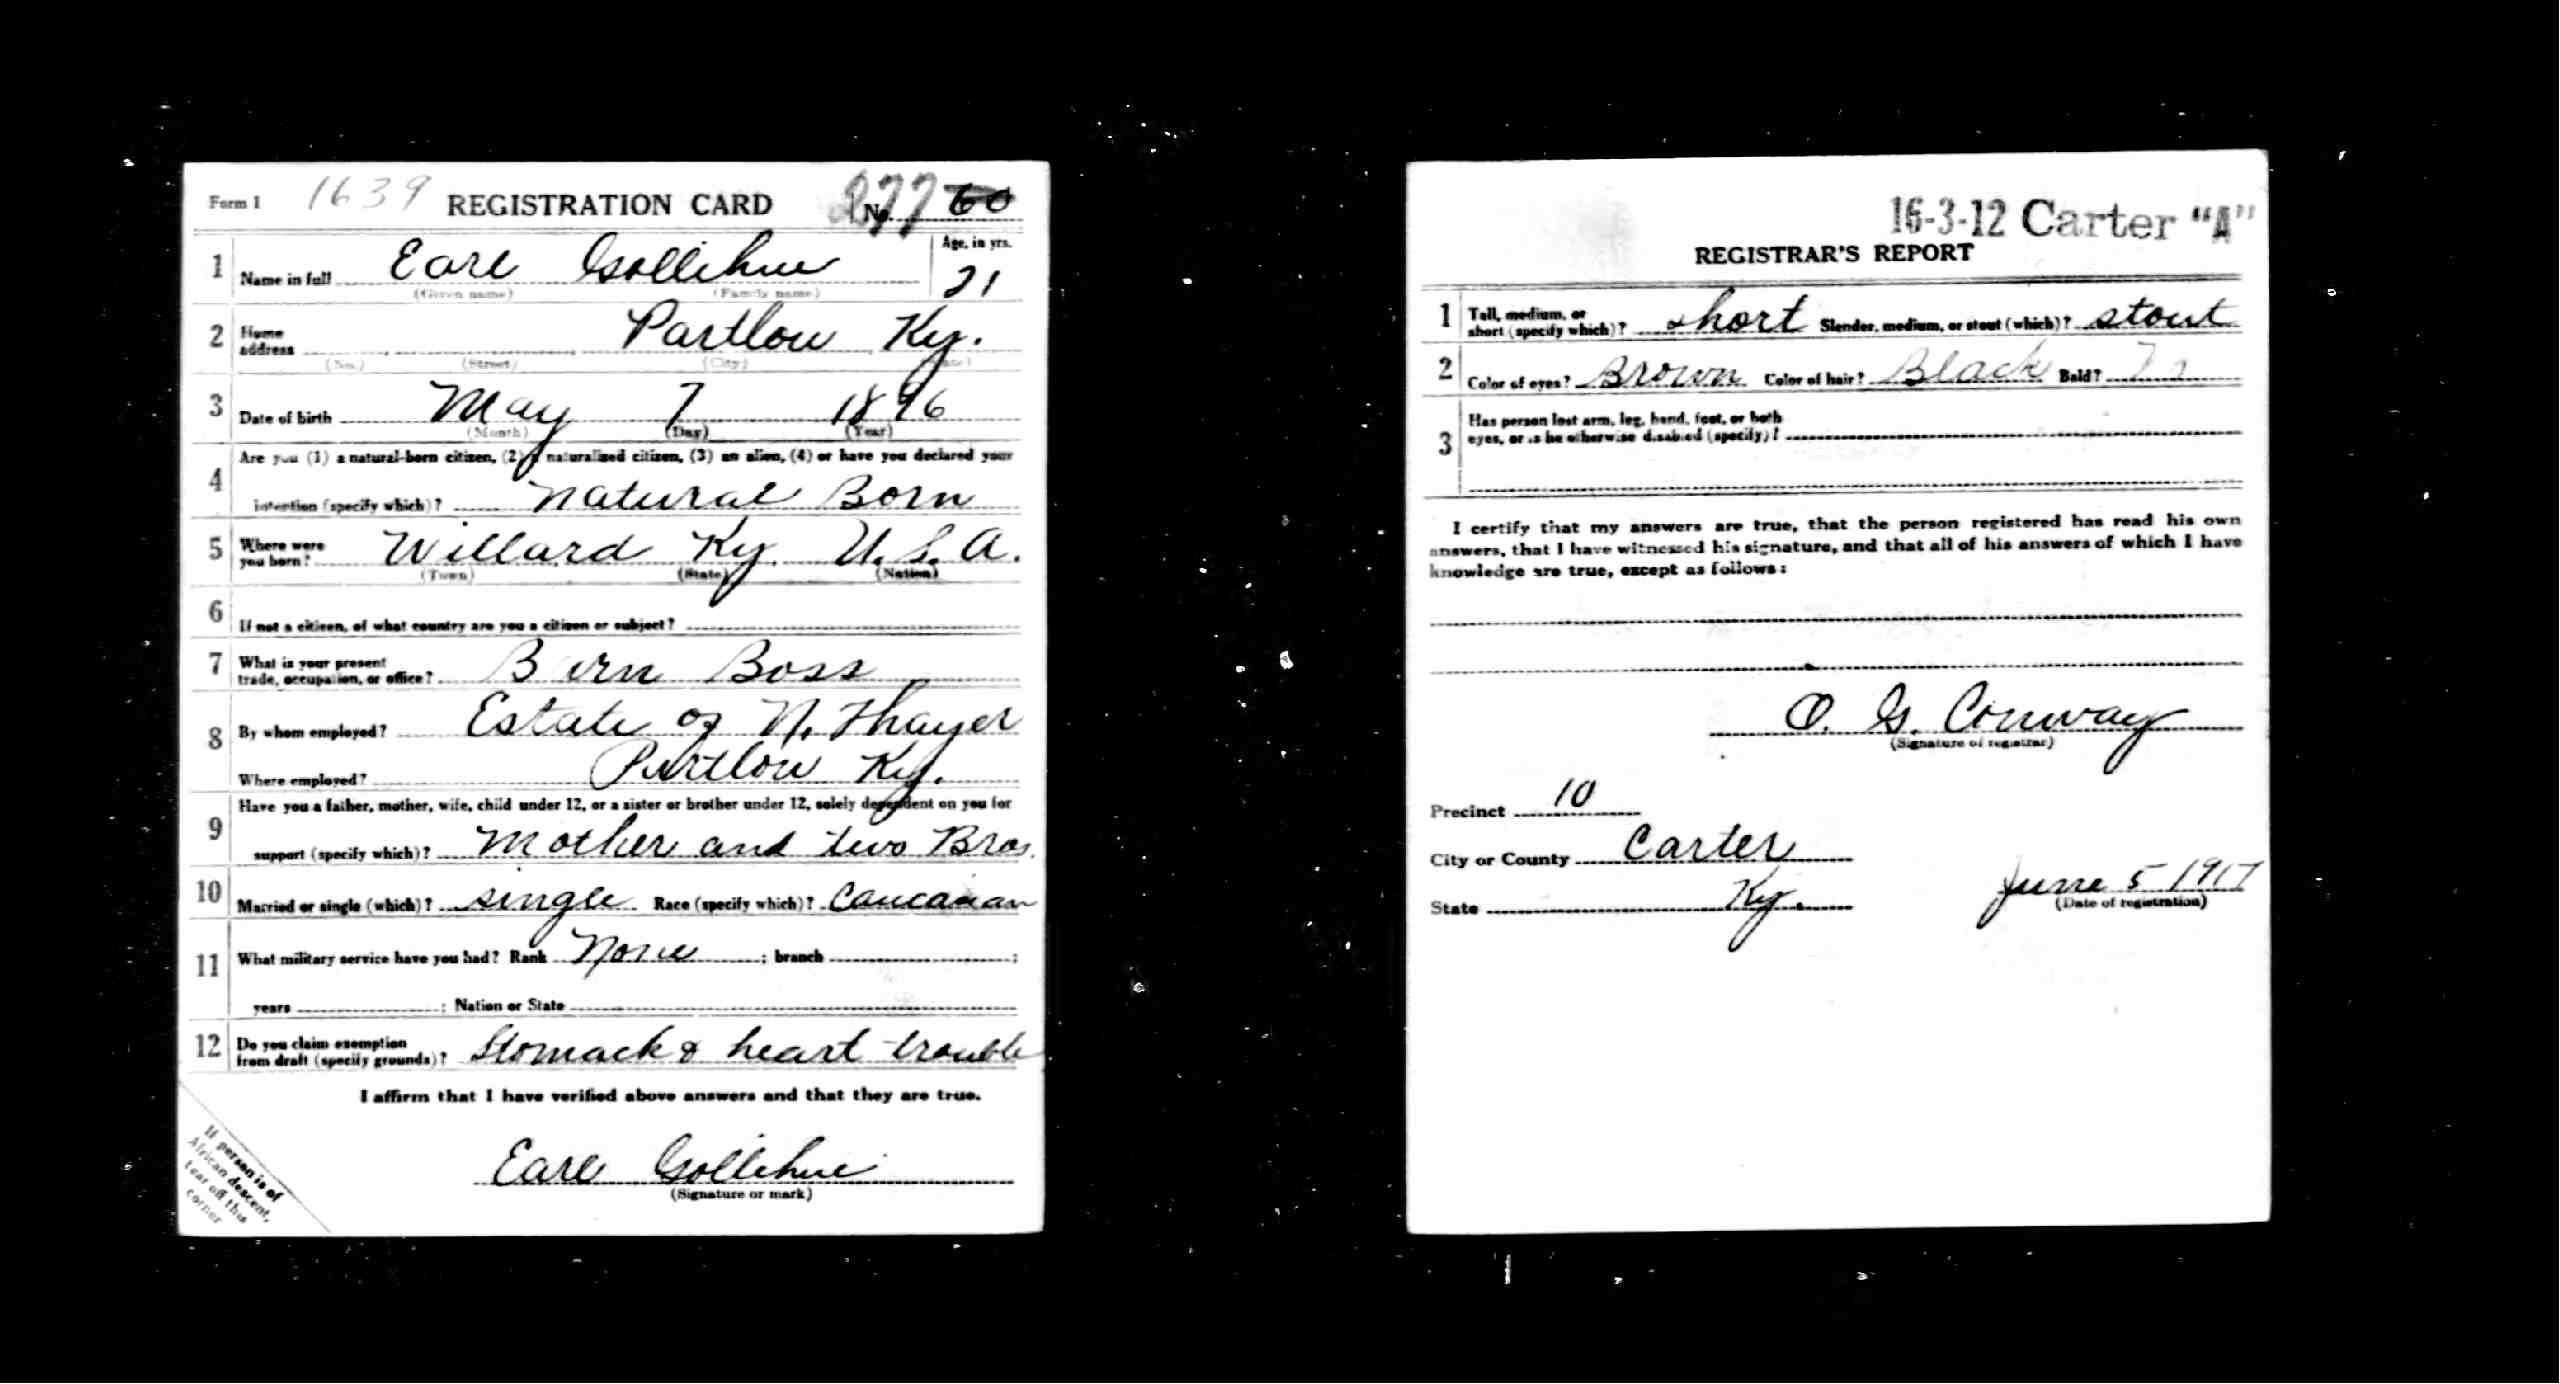 Form 1 1639 REGISTRATION CARD 277 No. 60
1 Name in full Earl Gollihue Age, in yrs. 21
(Given name) (Family name)
2 Home address Partlow Ky.
(No.) (Street) (City) (State)
3 Date of birth May 7 1896
(Month) (Day) (Year)
4 Are you (1) a natural-born citizen, (2) a naturalized citizen, (3) an alien, (4) or have you declared your
intention (specify which)? Natural Born
5 Where were you born? Willard Ky. U.S.A.
(Town) (State) (Nation)
6 If not a citizen, of what country are you a citizen or subject?
7 What is your present
trade, occupation, or office? Barn Boss
8 By whom employed? Estate of N. Thayer
Where employed? Partlow Ky.
9 Have you a father, mother, wife, child under 12, or a sister or brother under 12, solely dependent on you for
support (specify which)? Mother and two Bros.
10 Married or single (which)? single Race (specify which)? Caucasian
11 What military service have you had? Rank None ; branch ;
years ; Nation or State
12 Do you claim exemption
from draft (specify grounds)? Stomack & heart trouble
I affirm that I have verified above answers and that they are true.
Earl Gollihue
(Signature or mark)
If person is of
African descent,
tear off this
corner
16-3-12 Carter "A"
REGISTRAR'S REPORT
1 Tall, medium, or
short (specify which)? short Slender, medium, or stout (which)? stout
2 Color of eyes? Brown Color of hair? Black Bald?
3 Has person lost arm, leg, hand, foot, or both
eyes, or is he otherwise disabled (specify)?
I certify that my answers are true, that the person registered has read his own
answers, that I have witnessed his signature, and that all of his answers of which I have
knowledge are true, except as follows:
O. G. Conway
(Signature of registrar)
Precinct 10
City or County Carter
State Ky. June 5 1917
(Date of registration)